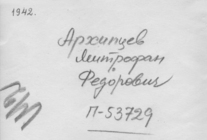 1942.
Архипцев
Митрофан
Федорович
П-53729